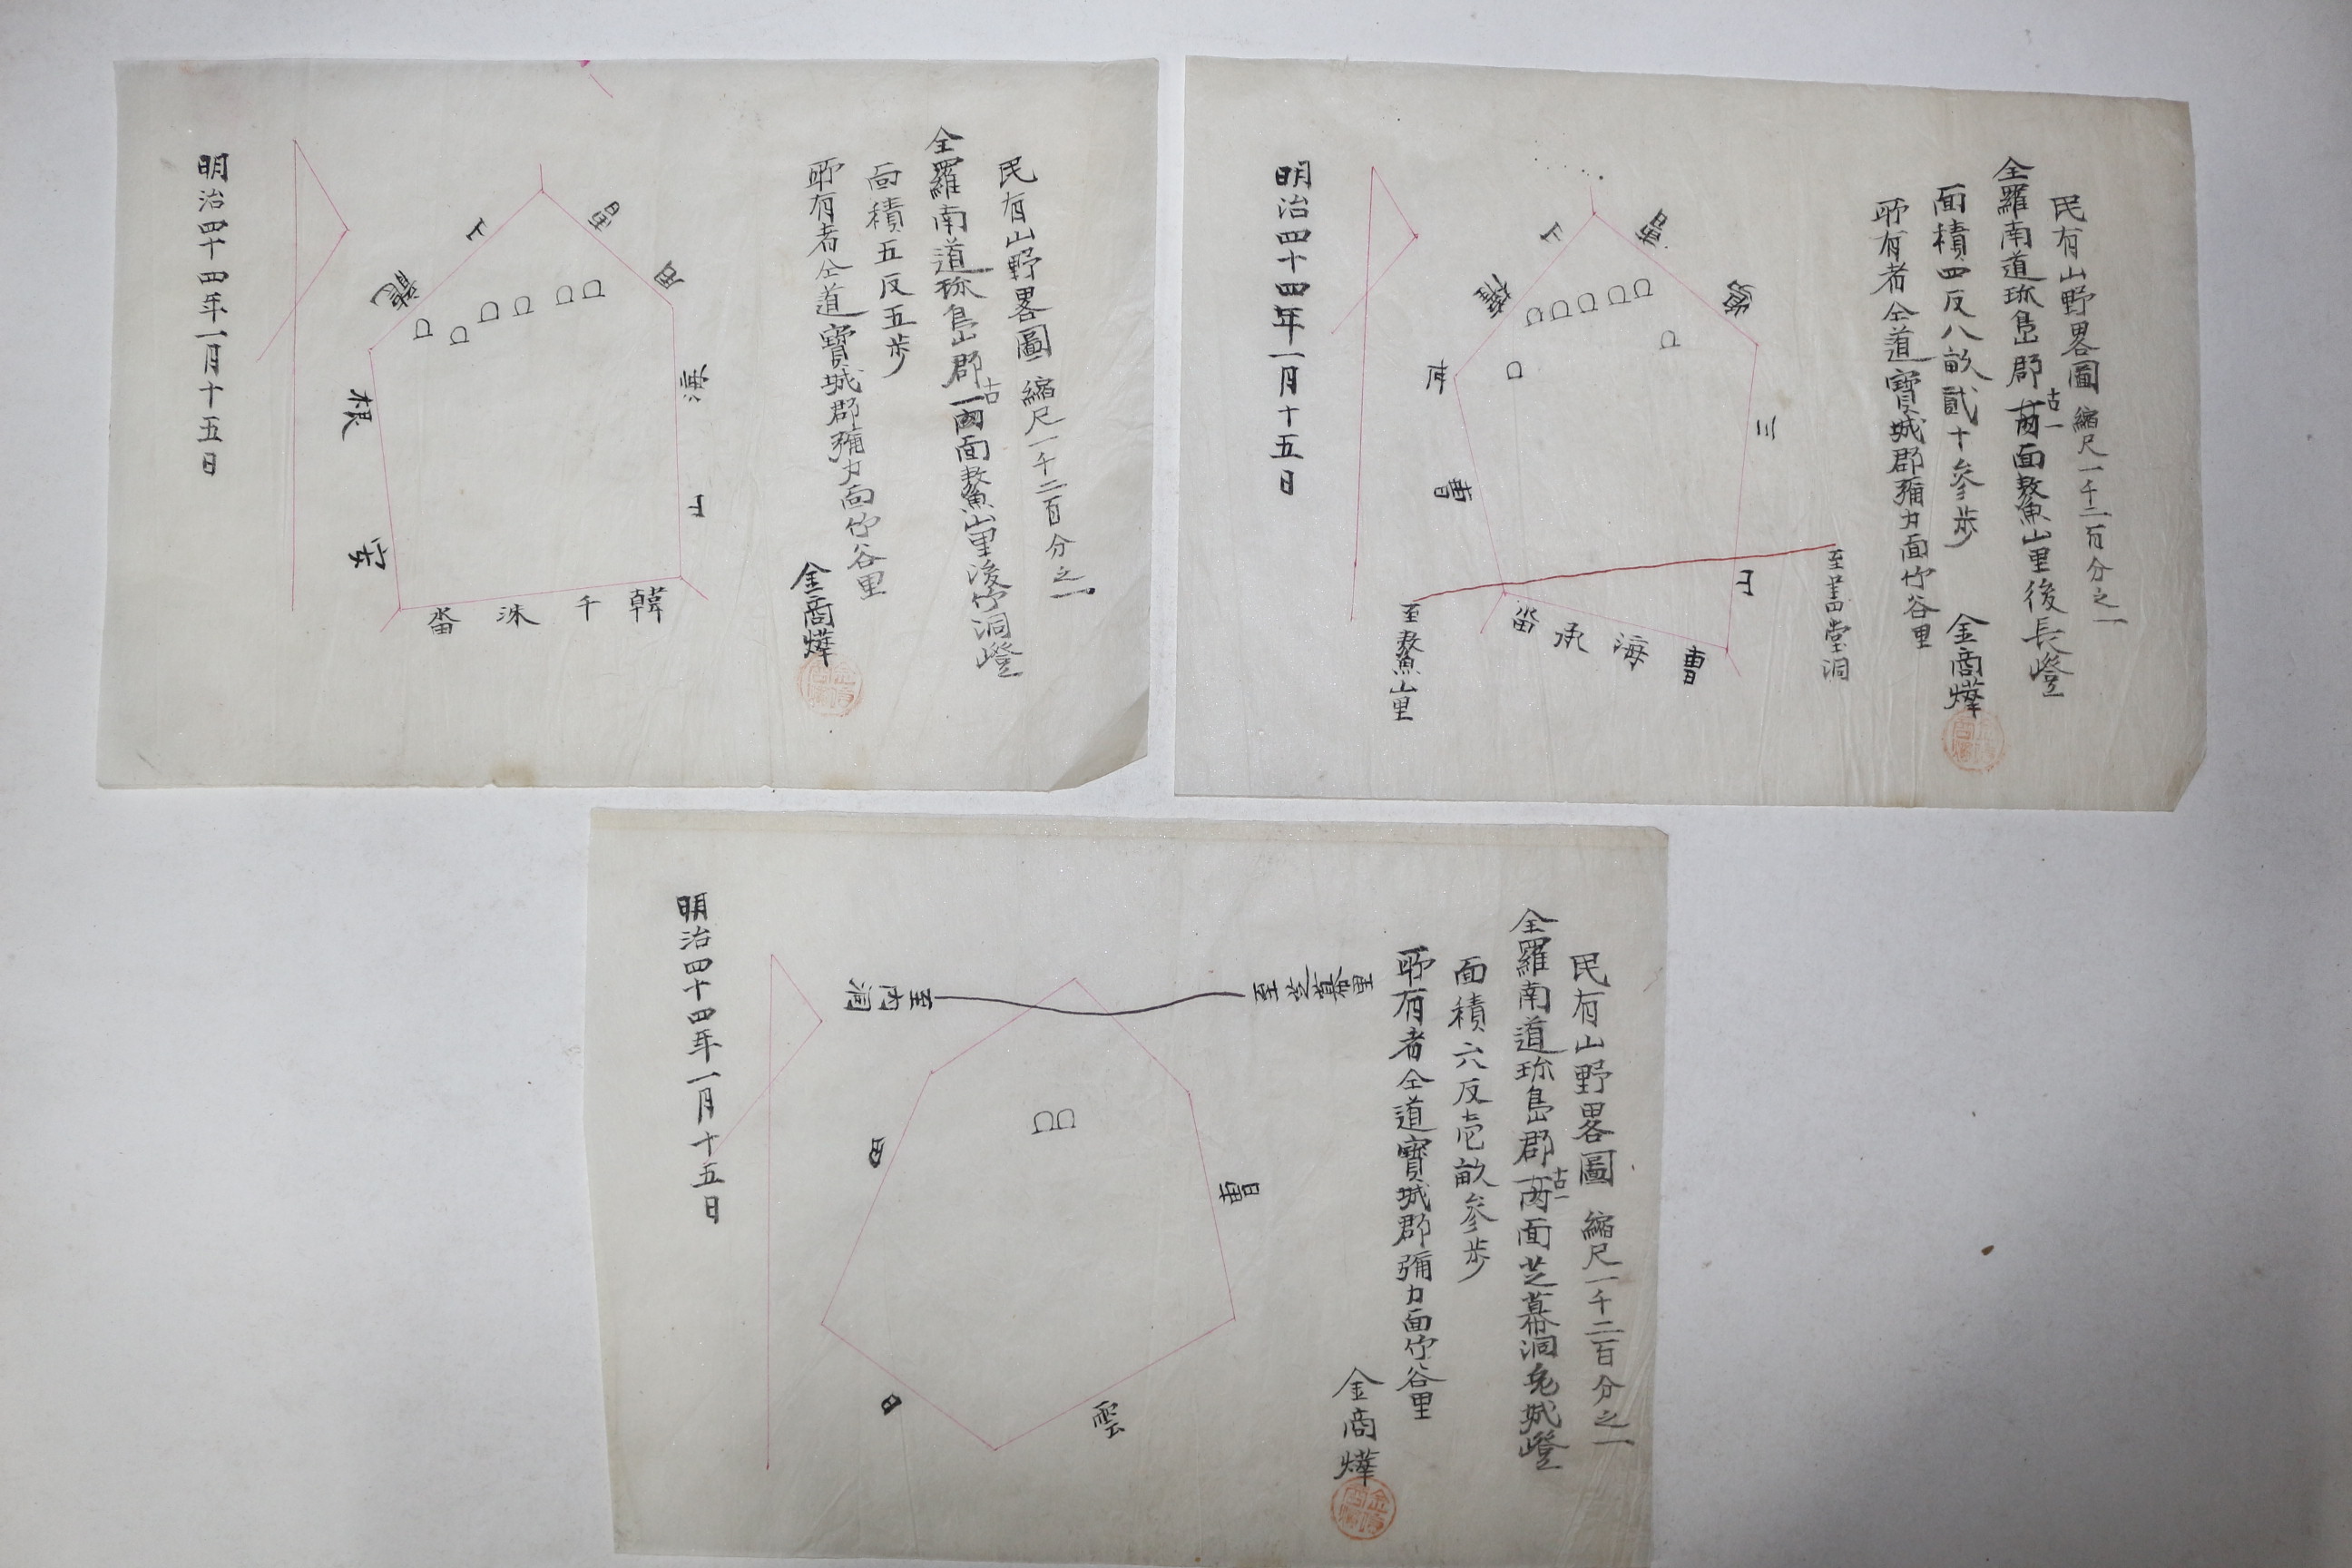 民有山野畧圖 縮尺一千二百分之一
全羅南道珎島郡古一面鰲山里後竹洞嶝
面積五反五步
所有者仝道寶城郡彌力面竹谷里
金商燁
韓千洙畓
明治四十四年一月十五日
民有山野畧圖 縮尺一千二百分之一
全羅南道珎島郡古一面鰲山里後長嶝
面積四反八畝貳十參步
所有者仝道寶城郡彌力面竹谷里
金商燁
至書堂洞
曺海承畓
至鰲山里
明治四十四年一月十五日
民有山野畧圖 縮尺一千二百分之一
全羅南道珎島郡古一面芝幕洞兎城嶝
面積六反壱畝參步
所有者仝道寶城郡彌力面竹谷里
金商燁
至芝幕里
至内洞
明治四十四年一月十五日